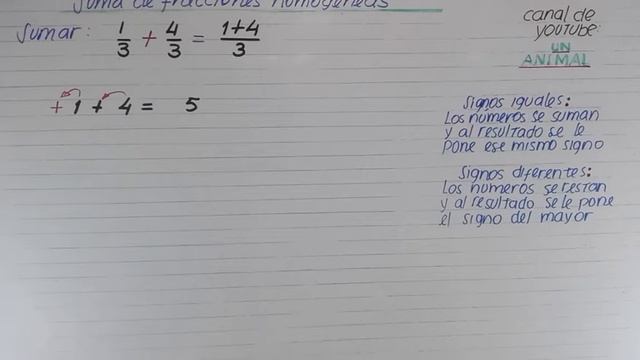 Suma de fracciones homogéneas
Sumar: 1/3 + 4/3 = 1+4/3
+1 + 4 = 5
canal de
YOUTUBE:
UN
ANIMAL
Signos iguales:
Los números se suman
y al resultado se le
pone ese mismo signo
Signos diferentes:
Los números se restan
y al resultado se le pone
el signo del mayor